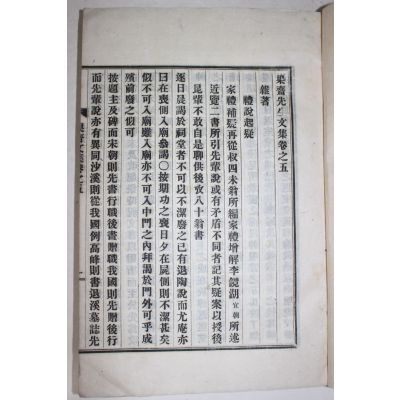 樂齋先生文集卷之五
雜著
禮說起疑
家禮補疑再從叔四未翁所編家禮增解李鏡湖宜朝所述
近覽二書所引先輩說或有矛盾不同者記其疑案以授後
昆輩不敢自是聊供後攷八十翁書
逐日晨謁於祠堂者不可以不潔廢之已有退陶說而尤庵亦
曰在喪側入廟參謁○按期功之喪日夕在屍側則不潔甚矣
似不可入廟雖入廟亦不可入中門之內拜謁於門外可乎成
殯前廢之似可
按題主及碑而宋朝則先書行職後書贈職我國則先贈後行
而先輩說亦有異同沙溪則從我國例高峰則書退溪墓誌先